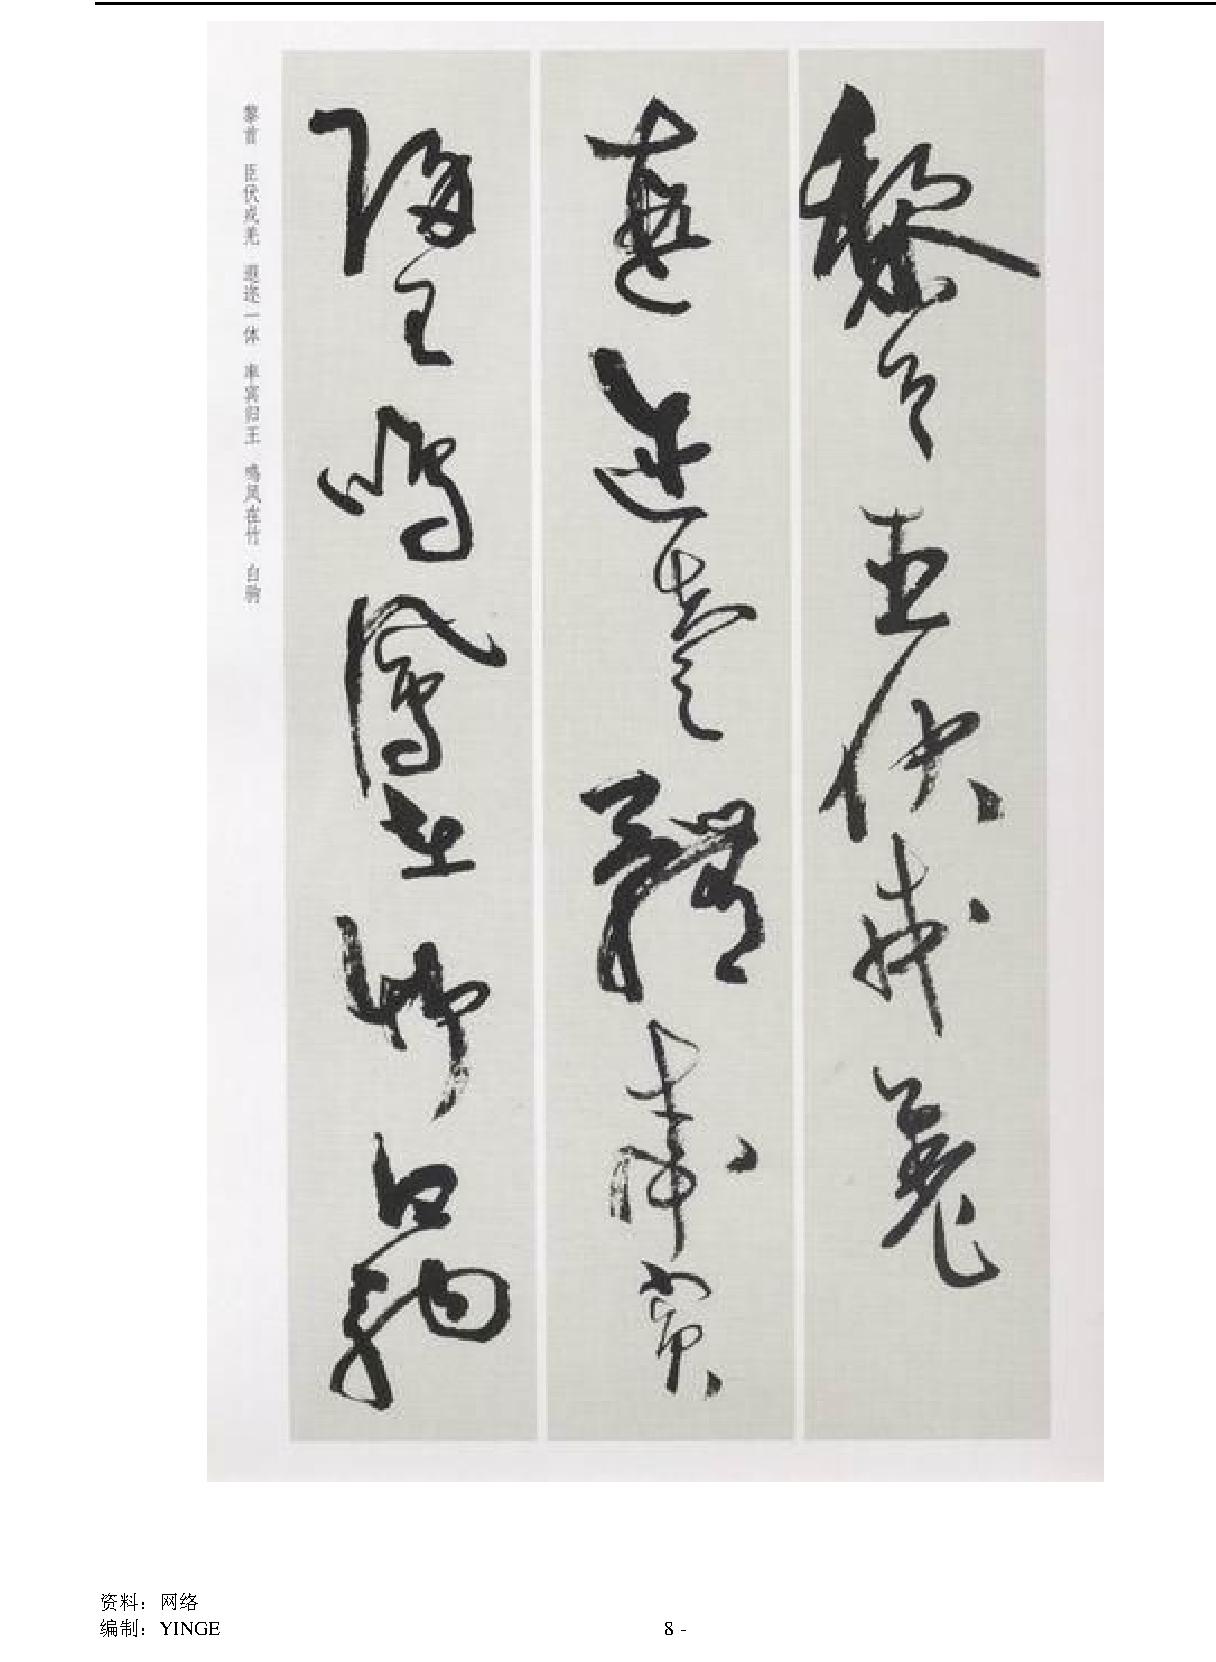 黎首臣伏戎羌
遐迩壹體率賓
歸王鳴鳳在竹白駒
黎首 臣伏戎羌 遐迩一体 率宾归王 鸣凤在竹 白驹
资料：网络
编制：YINGE
8 -